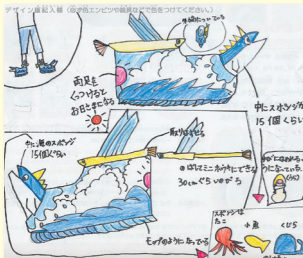 デザイン画記入欄（必ず色エンピツや絵具などで色をつけてください。）
両足を
くっつけると
お日さまになる
中にスポンジが
15個くらい
中に海のスポンジ
15個ぐらい
取りはずせる
のばしてミニホウキにできる
30cmぐらいのびる
モップのようになっている
スポンジは
たこ
小魚
くじら